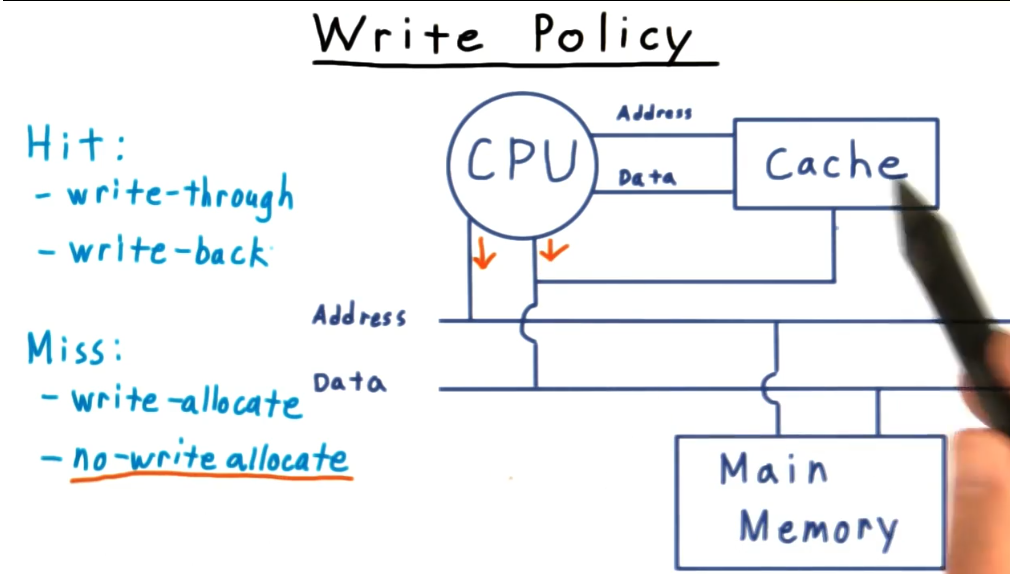 Write Policy
Hit:
- write-through
- write-back
Miss:
- write-allocate
- no-write allocate
CPU
Address
Data
Cache
Address
Data
Main
Memory